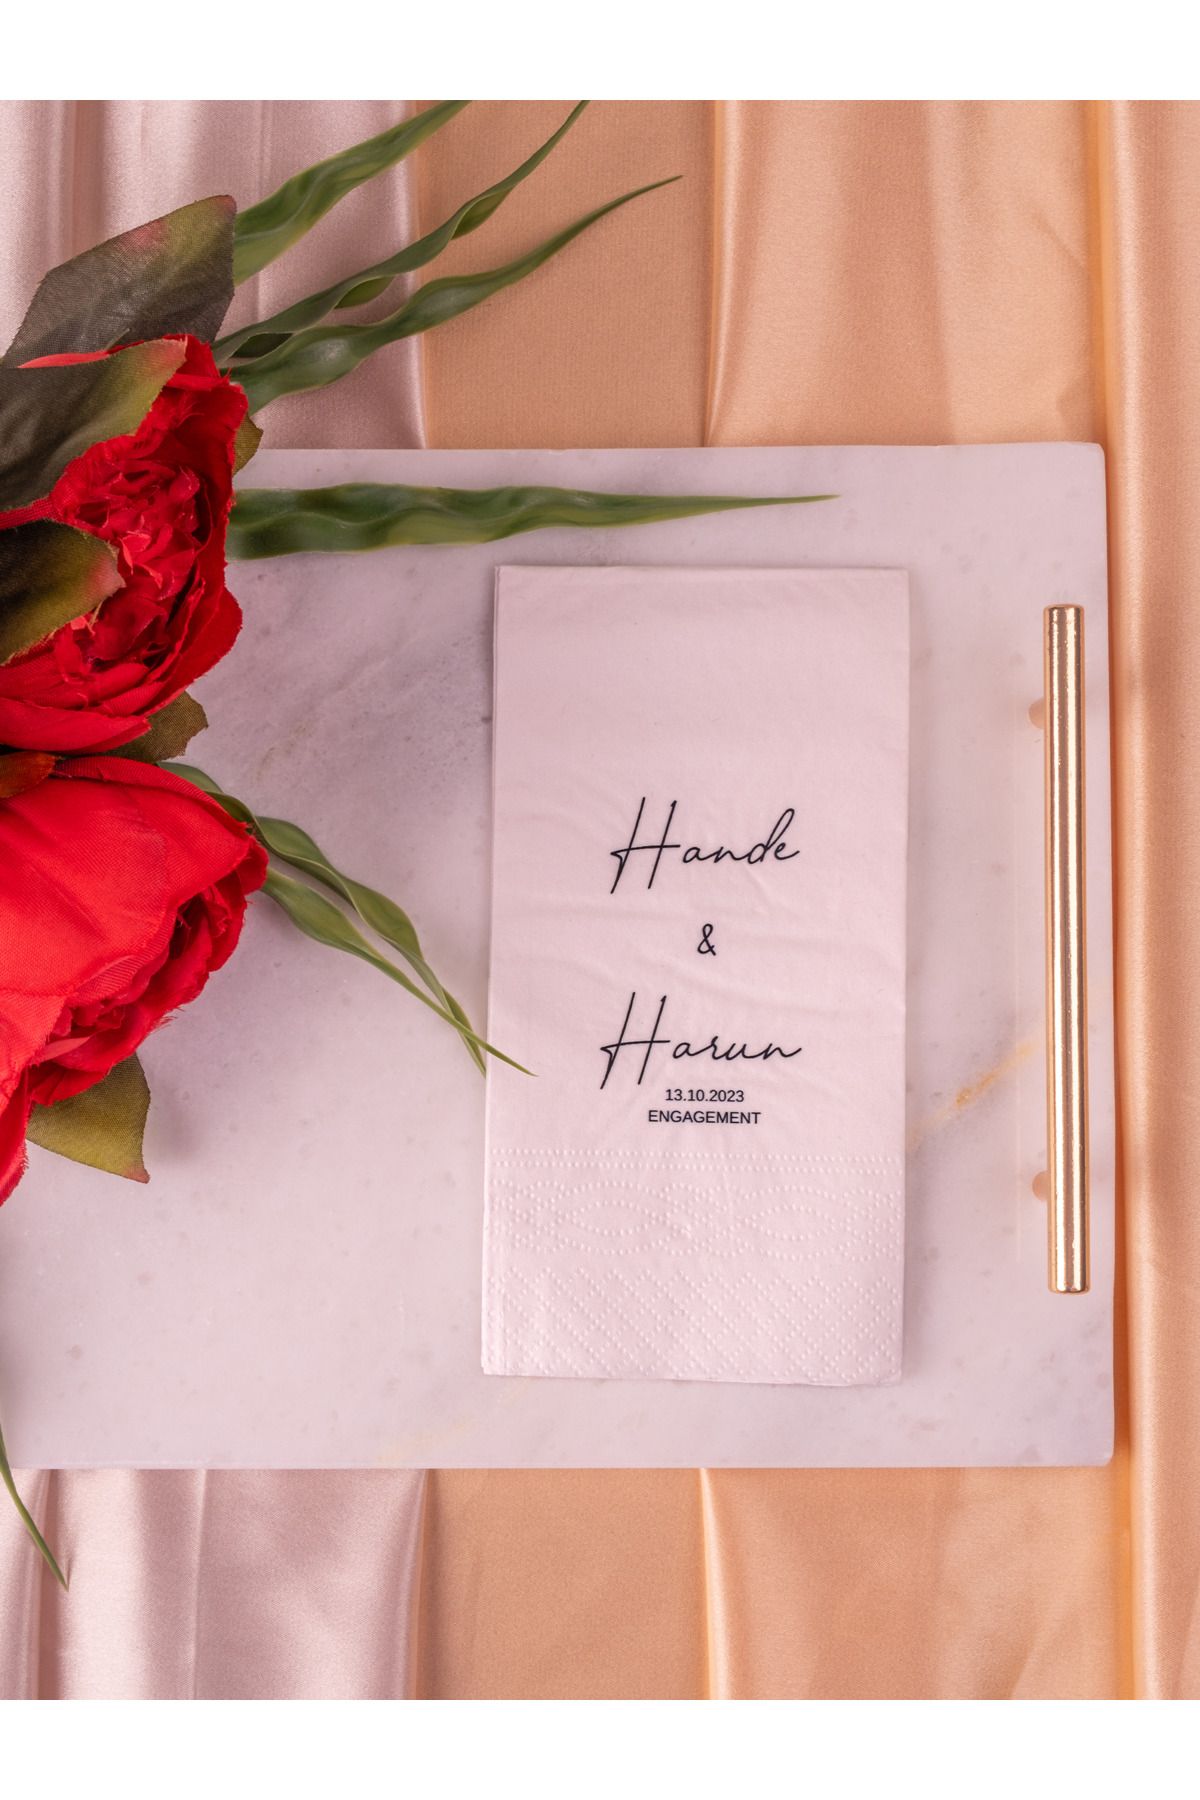 Hande
&
Harun
13.10.2023
ENGAGEMENT